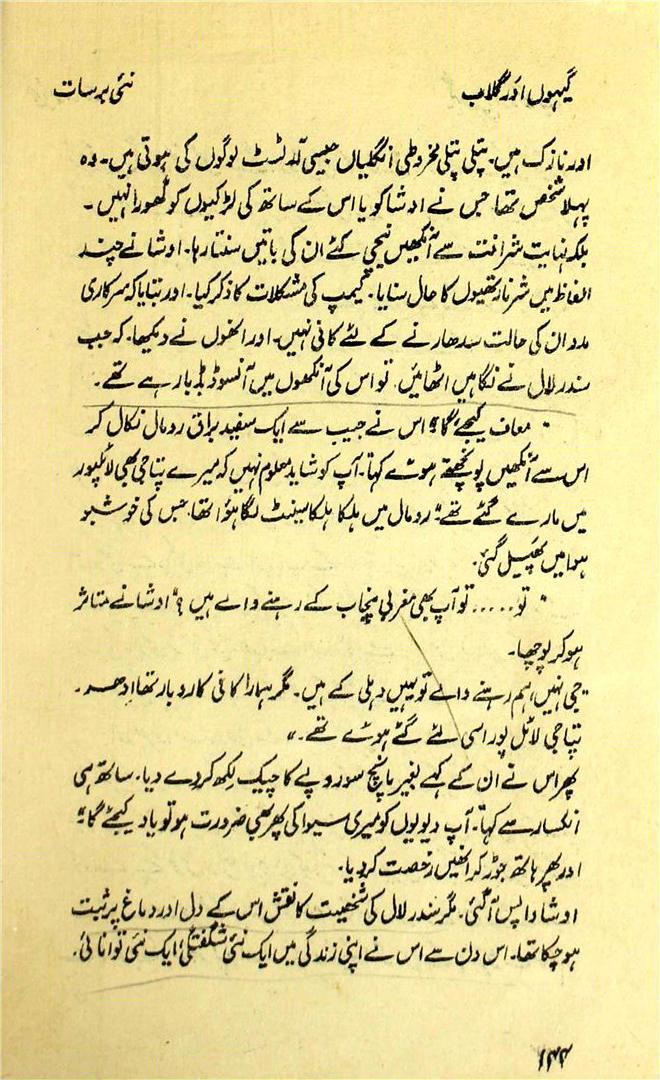 گیہوں اور گلاب
نئی برسات
اور نازک ہیں۔ پتلی پتلی مخروطی انگلیاں جیسی آرٹسٹ لوگوں کی ہوتی ہیں۔ وہ
پہلا شخص تھا جس نے اوشا کو یا اس کے ساتھ کی لڑکیوں کو گھورا نہیں۔
بلکہ نہایت شرافت سے آنکھیں نیچی کئے ان کی باتیں سنتا رہا۔ اوشا نے چند
الفاظ میں شرنارتھیوں کا حال سنایا۔ کیمپ کی مشکلات کا ذکر کیا۔ اور بتایا کہ سرکاری
مدد ان کی حالت سدھارنے کے لئے کافی نہیں۔ اور انھوں نے دیکھا۔ کہ جب
سندر لال نے نگاہیں اٹھائیں۔ تو اس کی آنکھوں میں آنسو ڈبڈبا رہے تھے۔
"معاف کیجئے گا" اس نے جیب سے ایک سفید براق رومال نکال کر
اس سے آنکھیں پونچھتے ہوئے کہا۔ آپ کو شاید معلوم نہیں کہ میرے پتاجی بھی لائلپور
میں مارے گئے تھے۔" رومال میں ہلکا ہلکا سینٹ لگا ہوا تھا جس کی خوشبو
ہوا میں پھیل گئی۔
"تو..... تو آپ بھی مغربی پنجاب کے رہنے والے ہیں؟" اوشا نے متاثر
ہو کر پوچھا۔
"جی نہیں، ہم رہنے والے تو یہیں دہلی کے ہیں۔ مگر ہمارا کافی کاروبار تھا ادھر۔
پتاجی لائل پور اسی لئے گئے ہوئے تھے۔"
پھر اس نے ان کے کہے بغیر پانچ سو روپے کا چیک لکھ کر دے دیا۔ ساتھ ہی
انکسار سے کہا۔ آپ دیویوں کو میری سیوا کی پھر بھی ضرورت ہو تو یاد کیجئے گا"
اور پھر ہاتھ جوڑ کر انھیں رخصت کر دیا۔
اوشا واپس آگئی۔ مگر سندر لال کی شخصیت کا نقش اس کے دل اور دماغ پر ثبت
ہو چکا تھا۔ اس دن سے اس نے اپنی زندگی میں ایک نئی شگفتگی، ایک نئی توانائی،